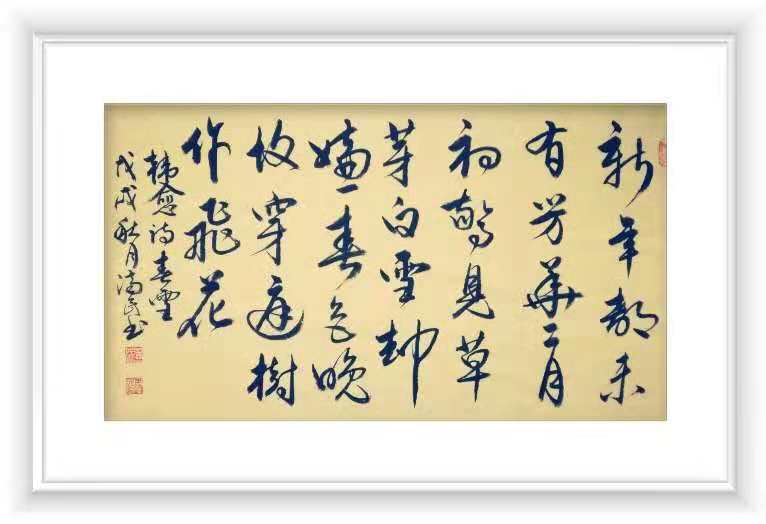 新年都未
有芳華二月
初驚見草
芽白雪却
嫌春色晚
故穿庭樹
作飛花
韓愈诗春雪
戊戌秋月民书